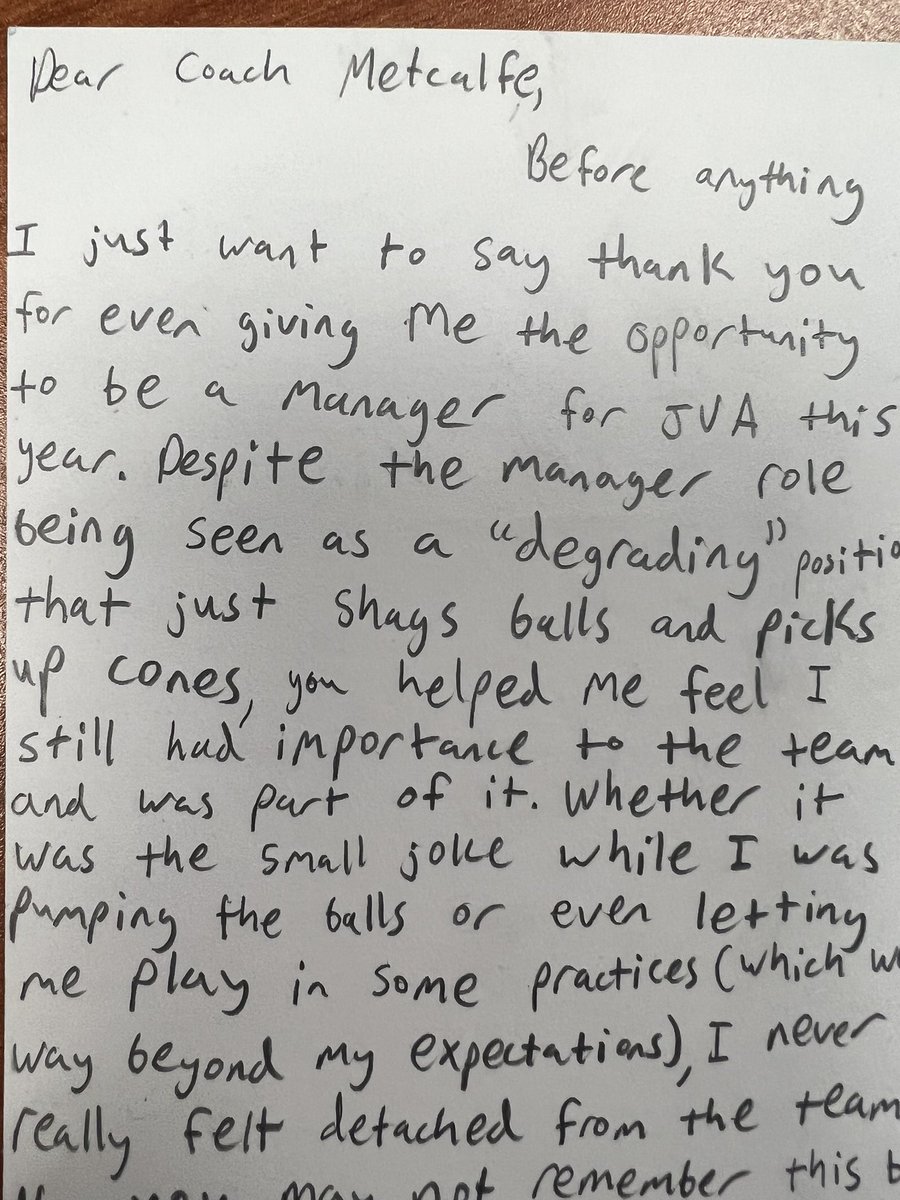 Dear Coach Metcalfe,
Before anything
I just want to say thank you
for even giving me the opportunity
to be a manager for JVA this
year. Despite the manager role
being seen as a "degrading" positio
that just shags balls and picks
up cones, you helped me feel I
still had importance to the team
and was part of it. Whether it
was the small joke while I was
pumping the balls or even letting
me play in some practices (which w
way beyond my expectations), I never
really felt detached from the team
you may not remember this b